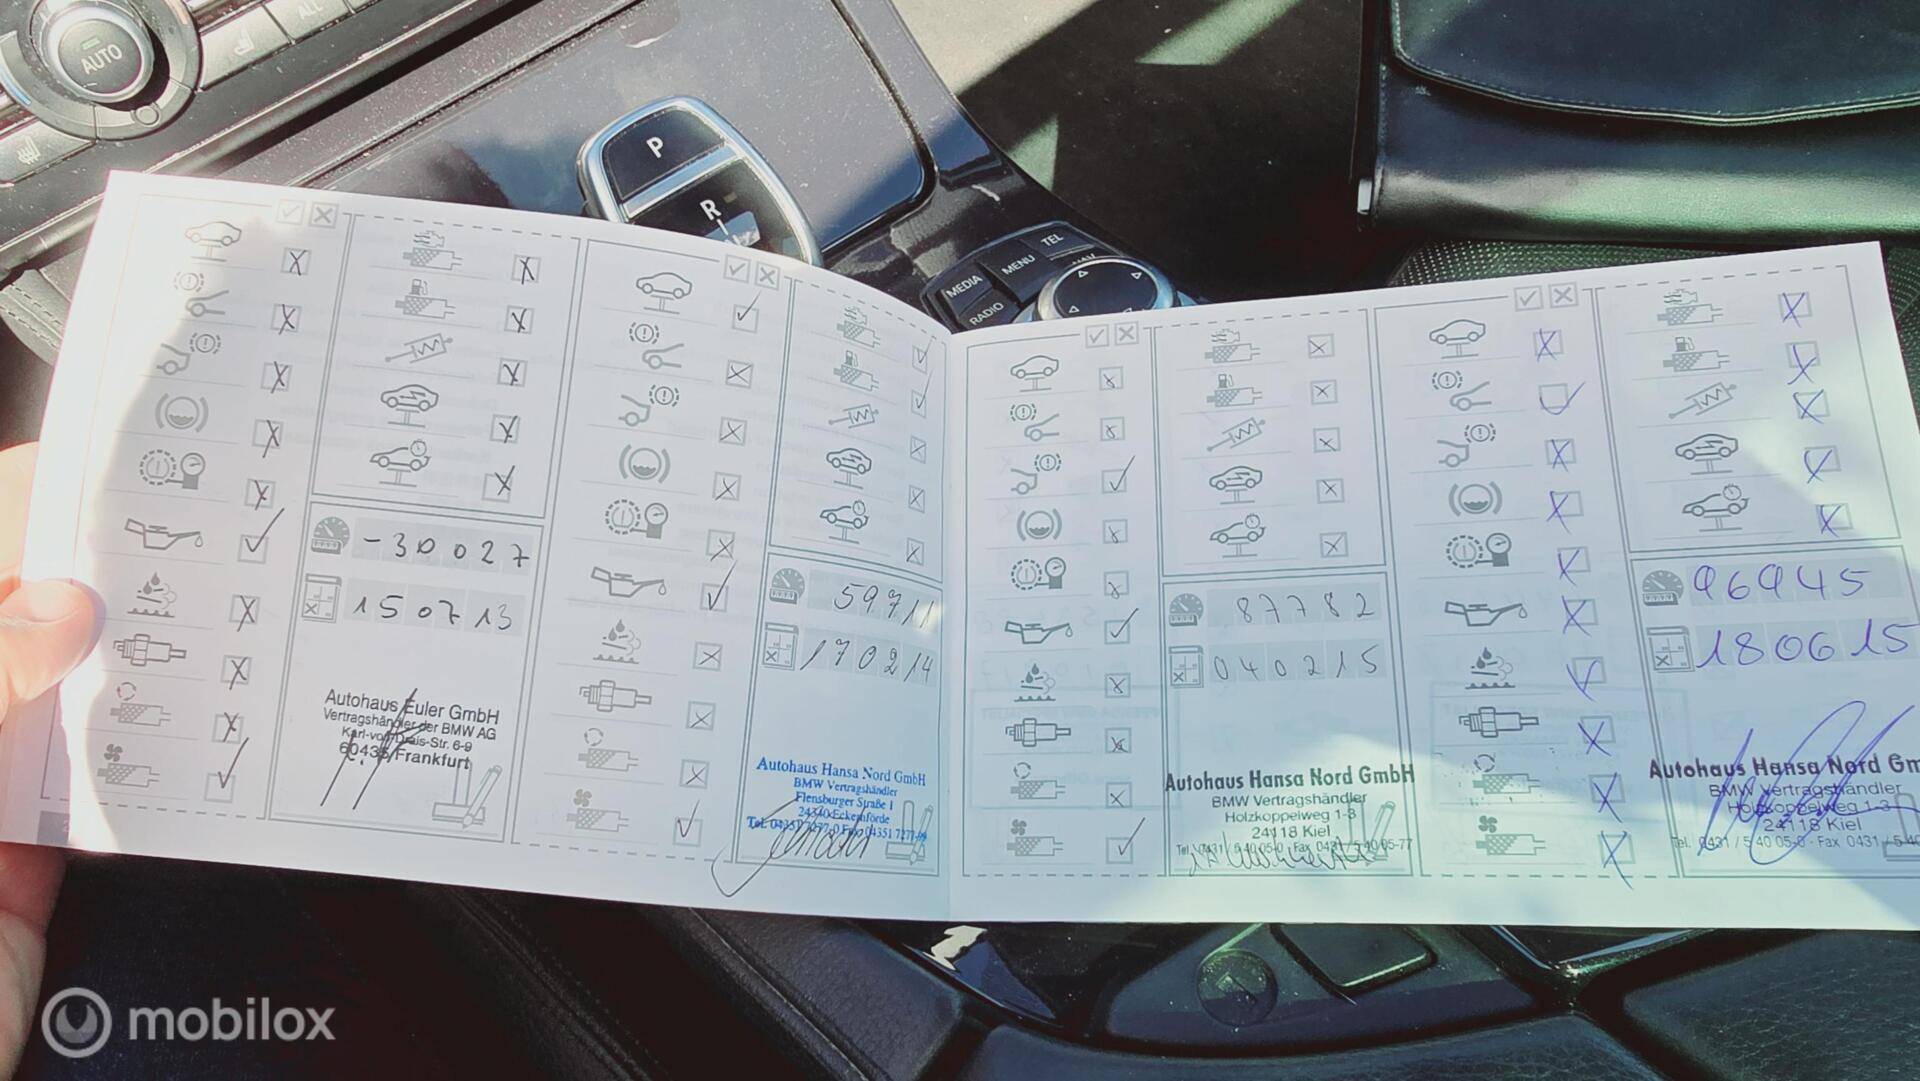 ALL
AUTO
P
R
TEL
MENU
MEDIA
RADIO
-30027
150713
Autohaus Euler GmbH
Vertragshändler der BMW AG
Karl-von-Drais-Str. 6-9
60435 Frankfurt
59711
170214
Autohaus Hansa Nord GmbH
BMW Vertragshändler
Flensburger Straße 1
24340 Eckernförde
Tel. 04351 7277-0 Fax 04351 7277-
87782
040215
Autohaus Hansa Nord GmbH
BMW Vertragshändler
Holzkoppelweg 1-3
24118 Kiel
Tel. 0431 / 5 40 05-0 · Fax 0431 / 5 40 05-77
96945
180615
Autohaus Hansa Nord Gm
BMW Vertragshändler
Holzkoppelweg 1-3
24118 Kiel
Tel. 0431 / 5 40 05-0 · Fax 0431 / 5 40
mobilox